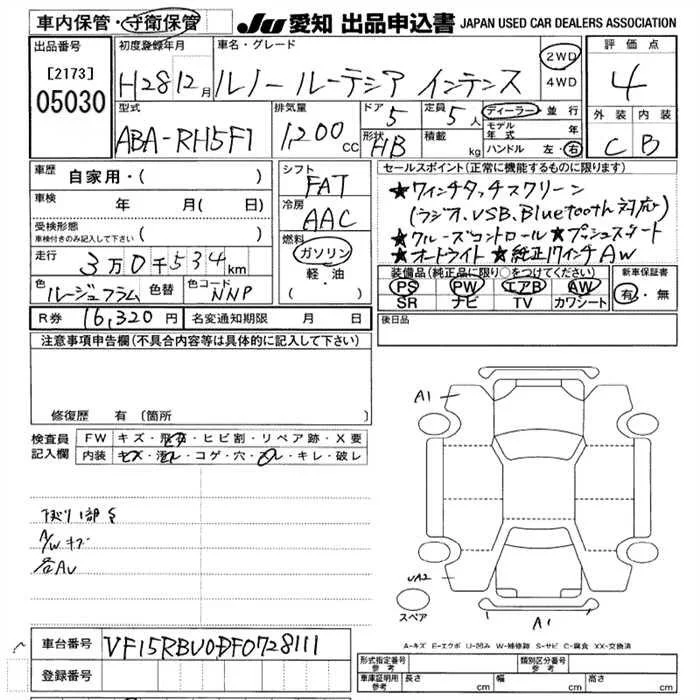 車内保管・守衛保管
JU 愛知 出品申込書 JAPAN USED CAR DEALERS ASSOCIATION
出品番号
[2173]
05030
初度登録年月
H28 12月
車名・グレード
ルノー ルーテシア インテンス
2WD
4WD
評価点
4
型式
ABA-RH5F1
排気量
1,200 cc
ドア
5
定員
5人
形状
HB
積載
kg
ディーラー・並行
モデル年式 年
ハンドル 左・右
外装 内装
C B
車歴 自家用・( )
車検 年 月( 日)
受検形態
車検付きのみ記入して下さい ( )
走行 3万0千534km
色 ルージュフラム 色替 色コード NNP
シフト
FAT
冷房
AAC
燃料
ガソリン
軽・油
( )
セールスポイント(正常に機能するものに限ります)
★7インチタッチスクリーン
(ラジオ、USB、Bluetooth対応)
★クルーズコントロール ★プッシュスタート
★オートライト ★純正17インチAW
装備品(純正品に限り○をつけてください)
PS PW エアB AW
SR ナビ TV カワシート
新車保証書
有・無
R券 16,320円 名変通知期限 月 日
後日品
注意事項申告欄(不具合内容等は具体的に記入して下さい)
修復歴 有 〔箇所 〕
検査員記入欄
FW キズ・飛石・ヒビ割・リペア跡・X要
内装 キズ・汚レ・コゲ・穴・スレ・キレ・破レ
A/Wキズ
A1
UA2
A1
スペア
A-キズ E-エクボ U-凹み W-補修跡 S-サビ C-腐食 XX-交換済
車台番号 VF15RBU0DF0728111
登録番号
形式指定番号 参考
類別区分番号 参考
車庫証明用 参考 長さ cm 幅 cm 高さ cm